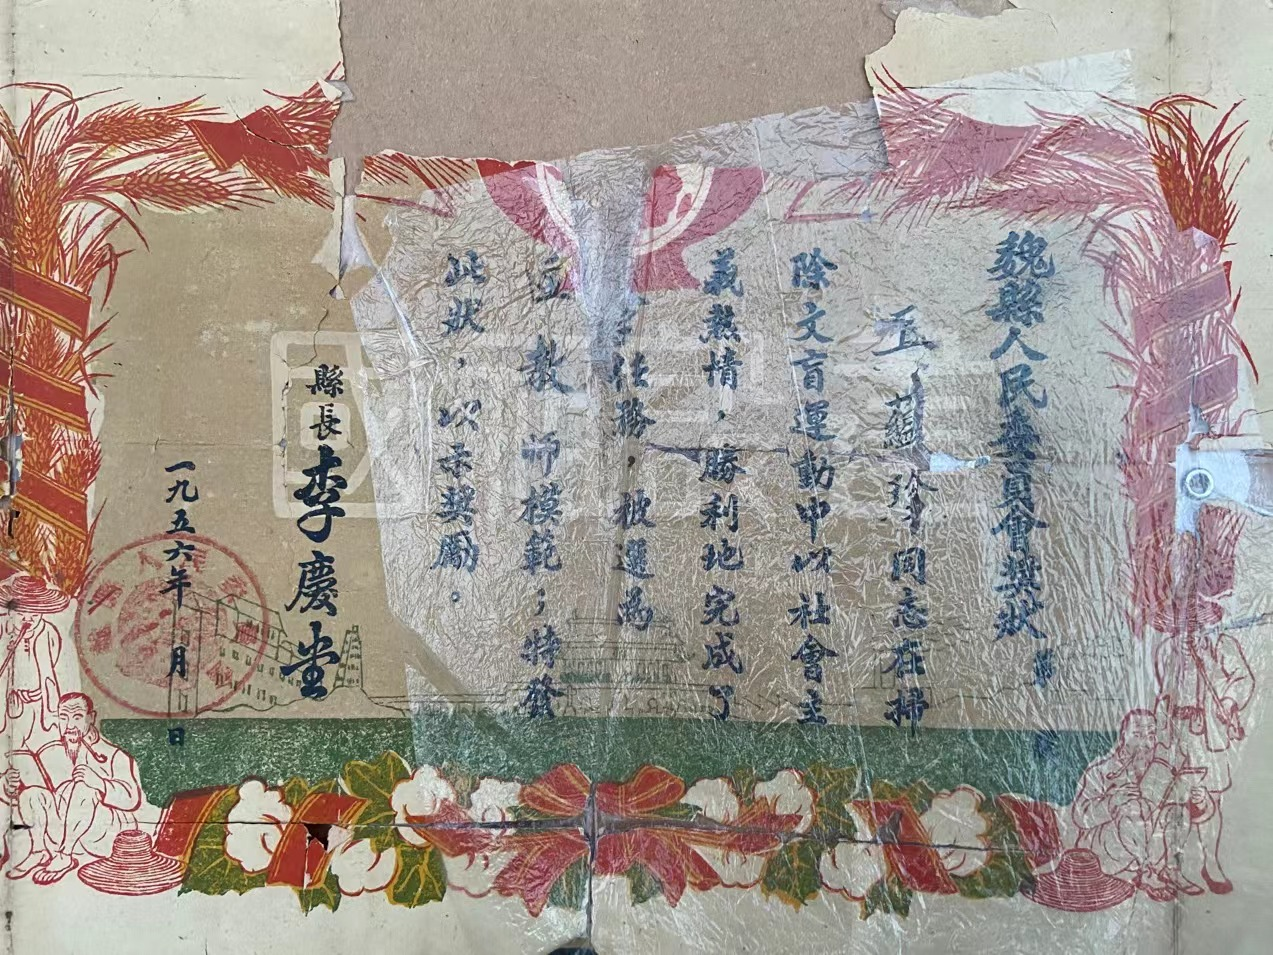 魏縣人民委員會獎狀 第
玉蘊珍同志在掃
除文盲運動中以社會主
義熱情，勝利地完成了
任務，被選為
立教師模範；特發
此狀，以示獎勵。
縣長李慶堂
一九五六年 月 日